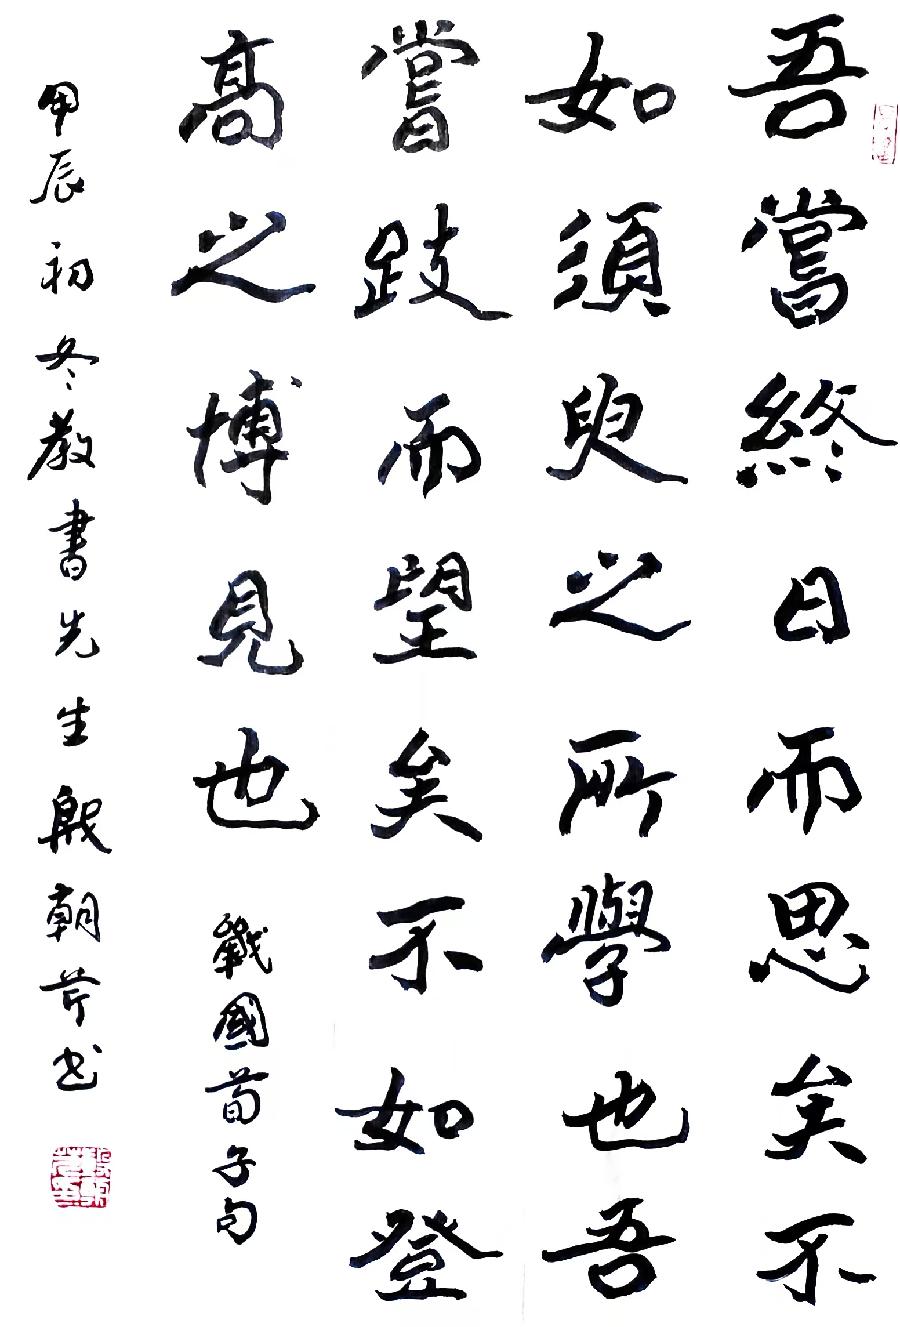 吾嘗終日而思矣不
如須臾之所學也吾
嘗跂而望矣不如登
高之博見也 戰國荀子句
甲辰初冬教書先生殷朝芹书